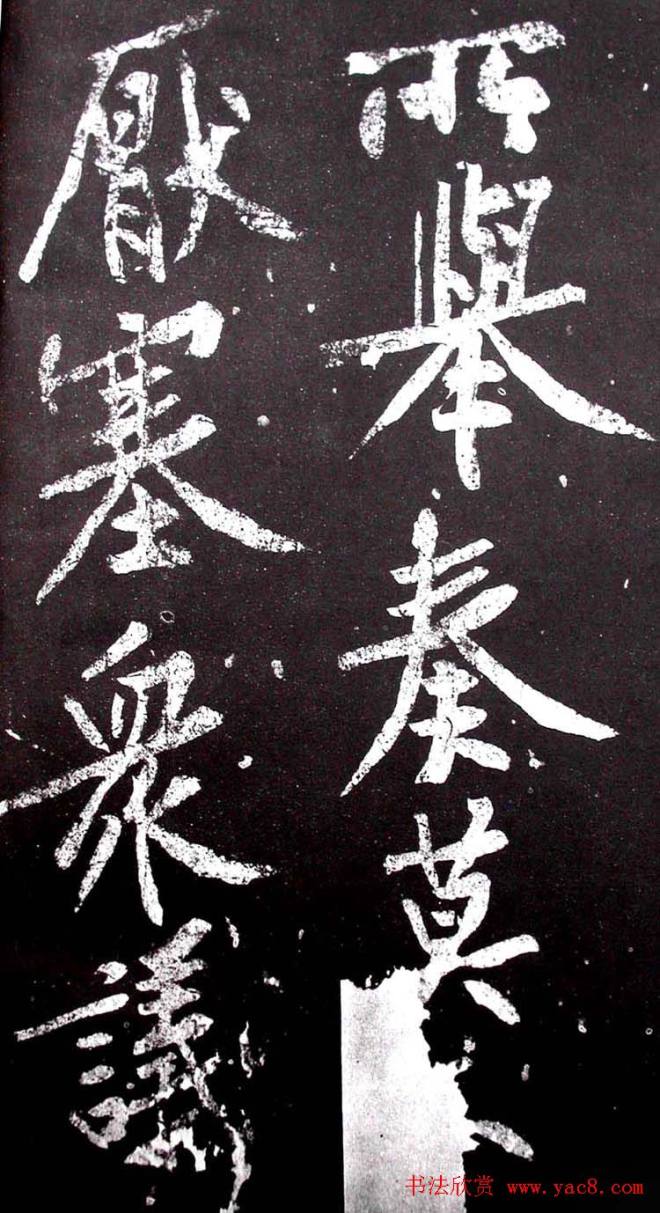 所舉奏莫
厭塞眾議
书法欣赏 www.yac8.com